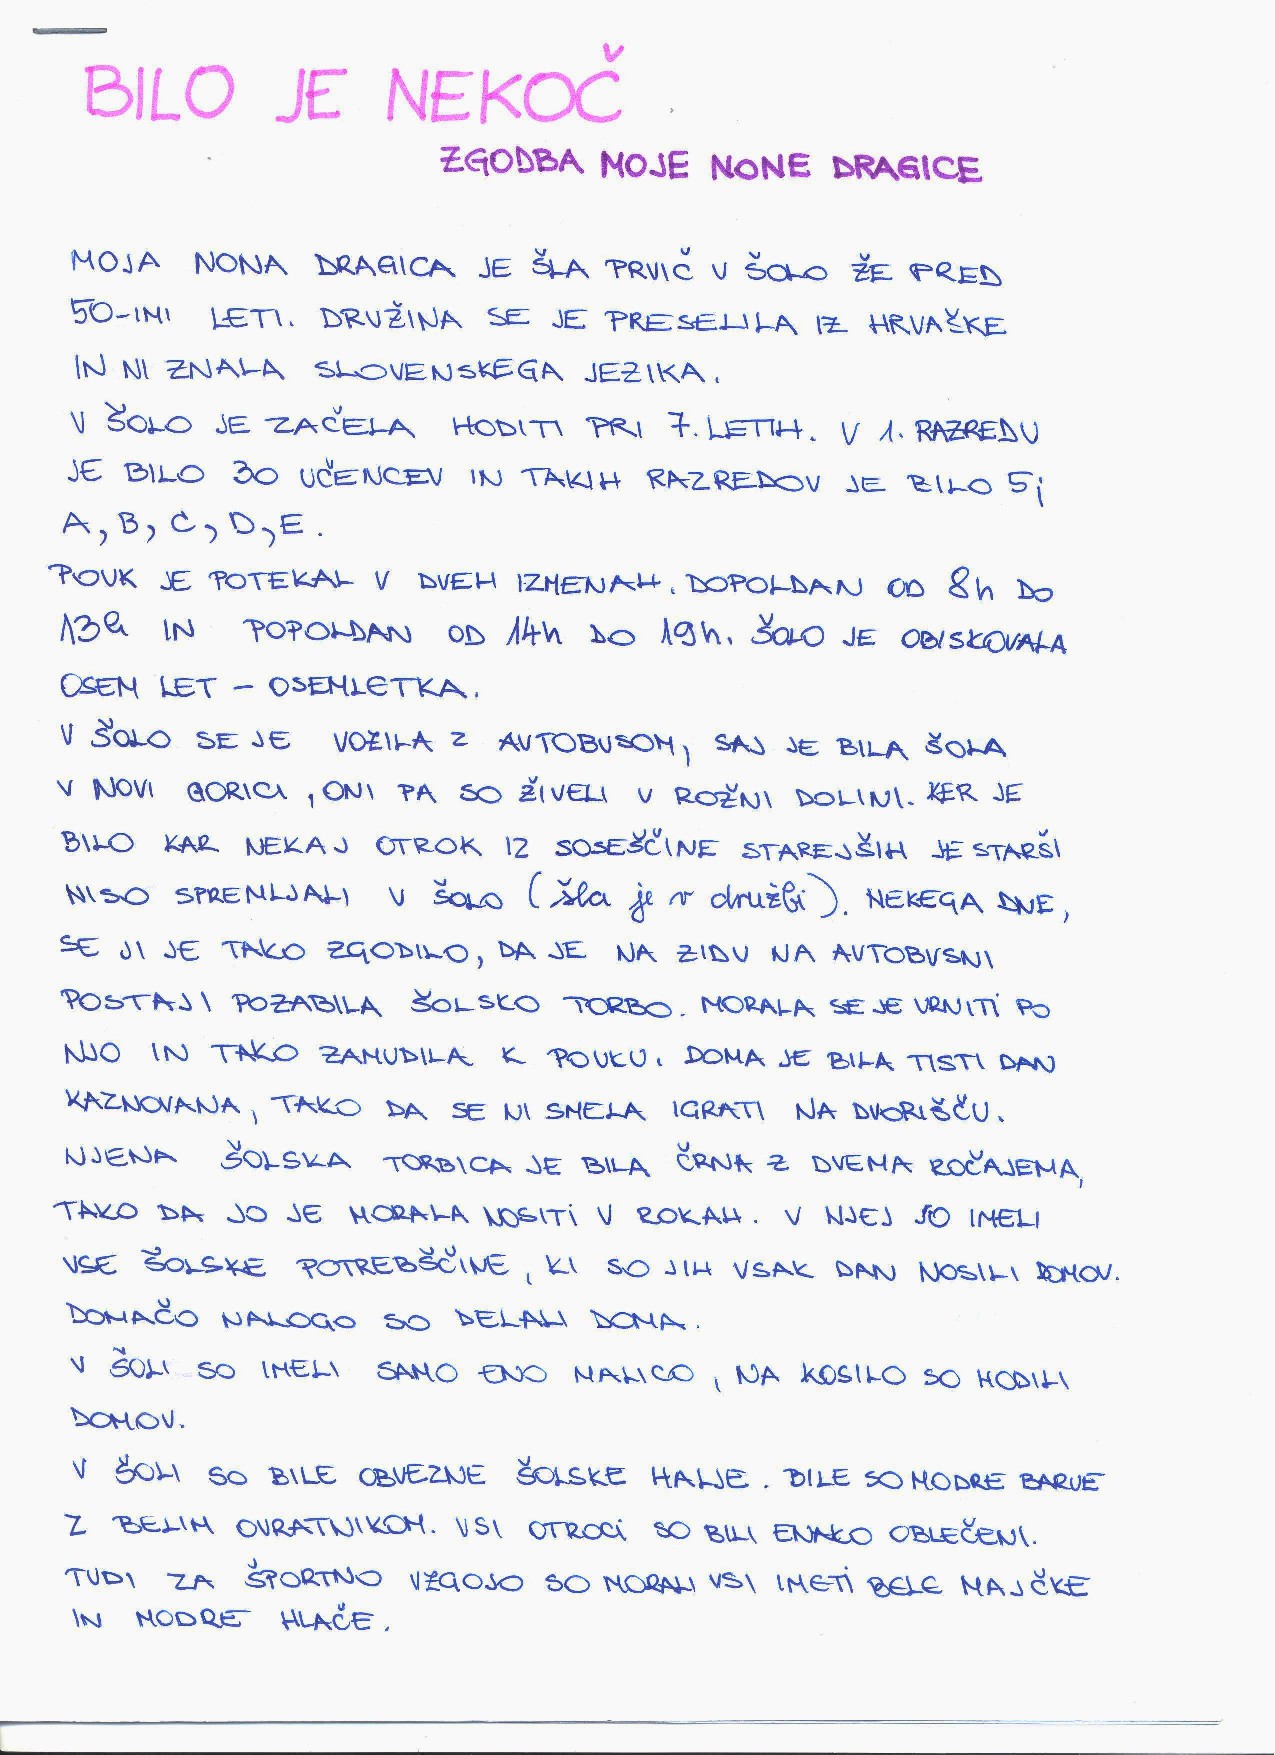 BILO JE NEKOČ
ZGODBA MOJE NONE DRAGICE
MOJA NONA DRAGICA JE ŠLA PRVIČ V ŠOLO ŽE PRED
50-IMI LETI. DRUŽINA SE JE PRESELILA IZ HRVAŠKE
IN NI ZNALA SLOVENSKEGA JEZIKA.
V ŠOLO JE ZAČELA HODITI PRI 7. LETIH. V 1. RAZREDU
JE BILO 30 UČENCEV IN TAKIH RAZREDOV JE BILO 5;
A, B, C, D, E.
POUK JE POTEKAL V DVEH IZMENAH. DOPOLDAN OD 8h DO
13h IN POPOLDAN OD 14h DO 19h. ŠOLO JE OBISKOVALA
OSEM LET - OSEMLETKA.
V ŠOLO SE JE VOZILA Z AVTOBUSOM, SAJ JE BILA ŠOLA
V NOVI GORICI, ONI PA SO ŽIVELI V ROŽNI DOLINI. KER JE
BILO KAR NEKAJ OTROK IZ SOSEŠČINE STAREJŠIH JE STARŠI
NISO SPREMLJALI V ŠOLO (šla je v družbi). NEKEGA DNE,
SE JI JE TAKO ZGODILO, DA JE NA ZIDU NA AVTOBUSNI
POSTAJI POZABILA ŠOLSKO TORBO. MORALA SE JE VRNITI PO
NJO IN TAKO ZAMUDILA K POUKU. DOMA JE BILA TISTI DAN
KAZNOVANA, TAKO DA SE NI SMELA IGRATI NA DVORIŠČU.
NJENA ŠOLSKA TORBICA JE BILA ČRNA Z DVEMA ROČAJEMA,
TAKO DA JO JE MORALA NOSITI V ROKAH. V NJEJ SO IMELI
VSE ŠOLSKE POTREBŠČINE, KI SO JIH VSAK DAN NOSILI DOMOV.
DOMAČO NALOGO SO DELALI DOMA.
V ŠOLI SO IMELI SAMO ENO MALICO, NA KOSILO SO HODILI
DOMOV.
V ŠOLI SO BILE OBVEZNE ŠOLSKE HALJE. BILE SO MODRE BARVE
Z BELIM OVRATNIKOM. VSI OTROCI SO BILI ENAKO OBLEČENI.
TUDI ZA ŠPORTNO VZGOJO SO MORALI VSI IMETI BELE MAJČKE
IN MODRE HLAČE.